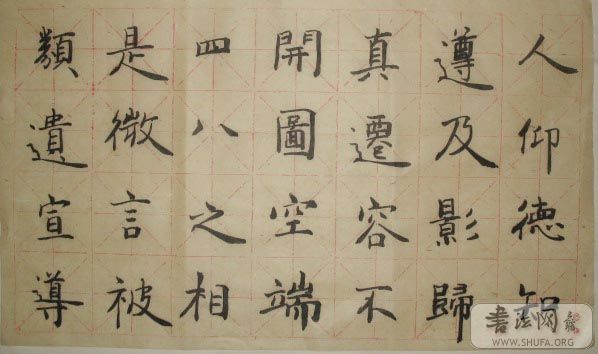 人仰德知
遵及影歸
真遷容不
開圖空端
四八之相
是微言被
類遺宣導
書法网
WWW.SHUFA.ORG